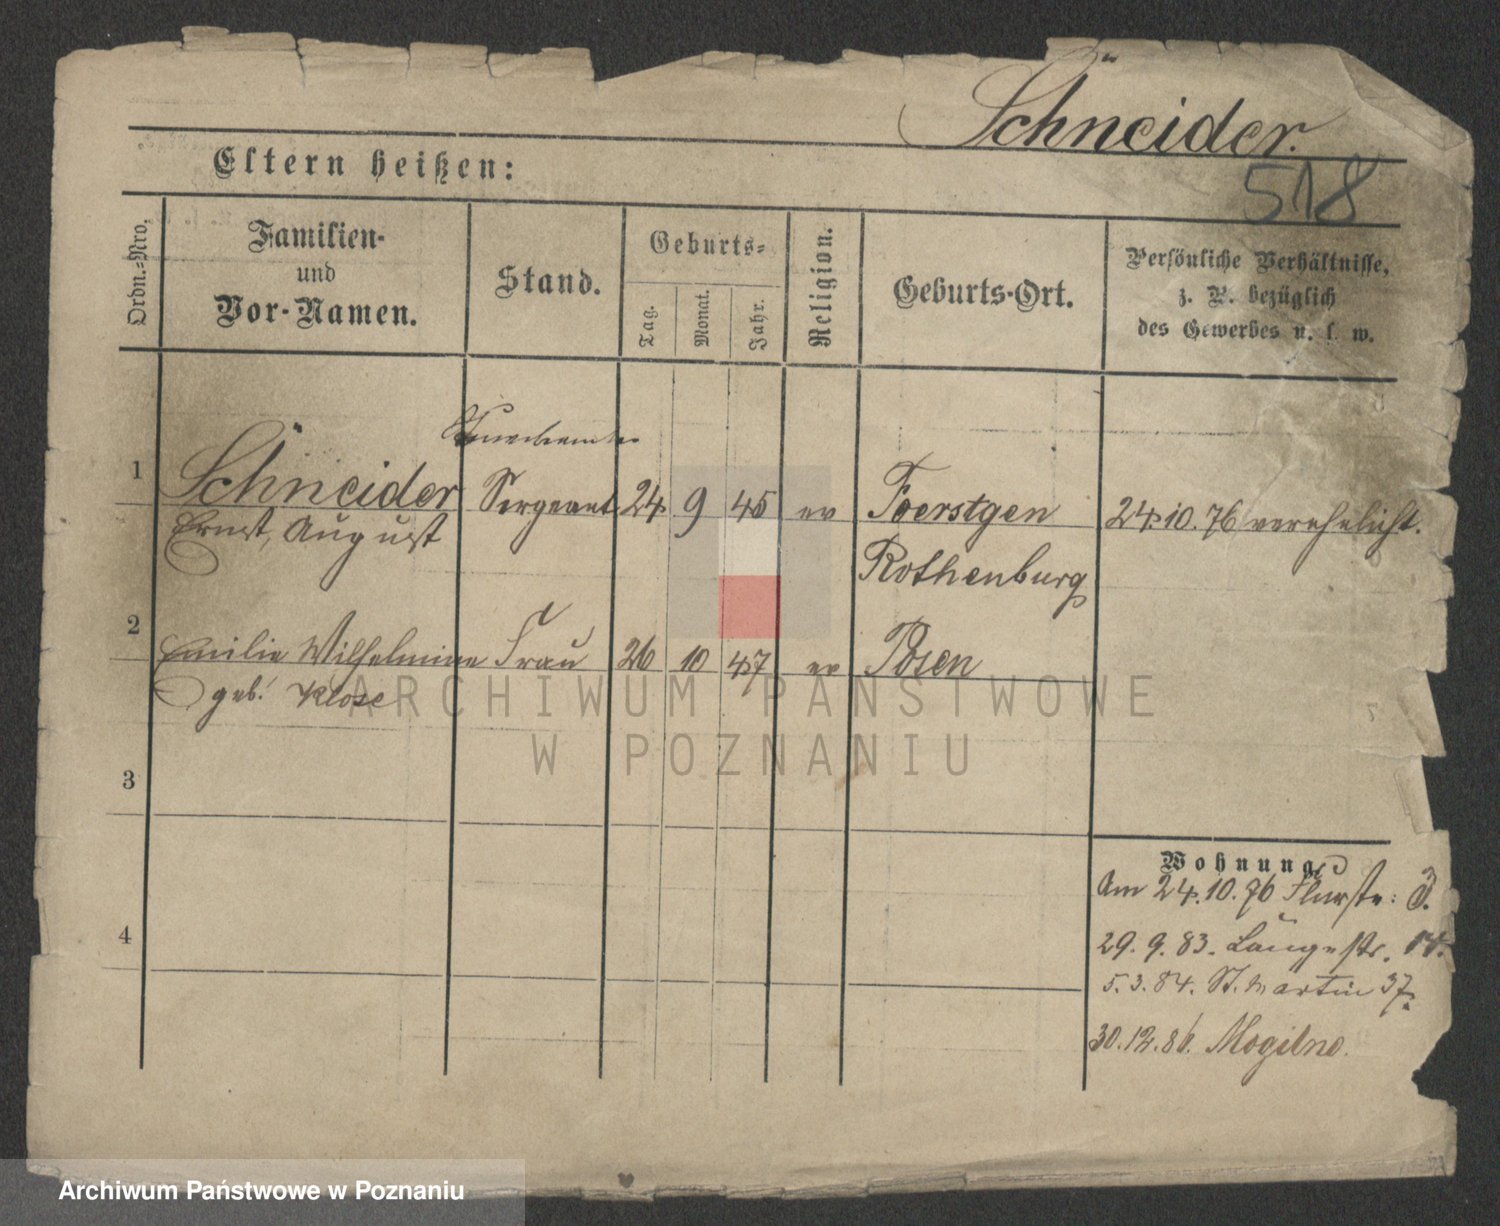 Schneider.
518
Eltern heißen:
Ordn.-Nro.
Familien-
und
Vor-Namen.
Stand.
Geburts-
Tag.
Monat.
Jahr.
Religion.
Geburts-Ort.
Persönliche Verhältnisse,
z. B. bezüglich
des Gewerbes u. s. w.
1
Schneider Sergeant 24 9 45 ev Foerstgen 24.10.76 verehelicht.
Ernst, August
Rothenburg
2
Emilie Wilhelmine Frau 26 10 47 ev Posen
geb. Klose
3
4
Wohnung
Am 24.10.76 Flurstr: 3.
29. 9. 83. Langestr.
5.3.84. St. Martin 37.
30.12.86. Mogilno.
ARCHIWUM PAŃSTWOWE
W POZNANIU
Archiwum Państwowe w Poznaniu